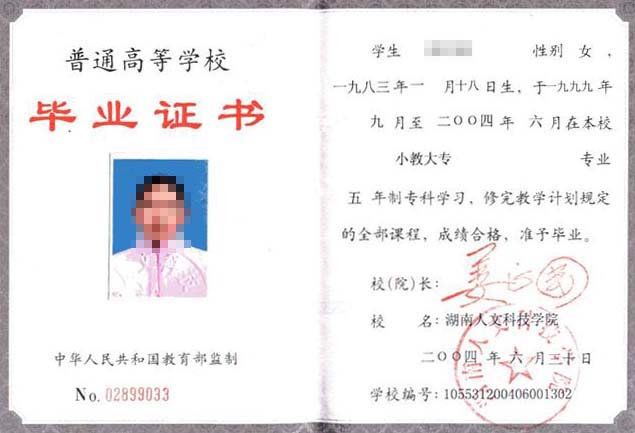 普通高等学校
毕业证书
中华人民共和国教育部监制
No. 02899033
学生 性别 女,
一九八三年一 月十八日生, 于一九九九年
九 月至 二〇〇四年 六月在本校
小教大专 专业
五 年制专科学习, 修完教学计划规定
的全部课程, 成绩合格, 准予毕业。
校(院)长:
校 名: 湖南人文科技学院
二〇〇四年 六 月三十日
学校编号: 105531200406001302